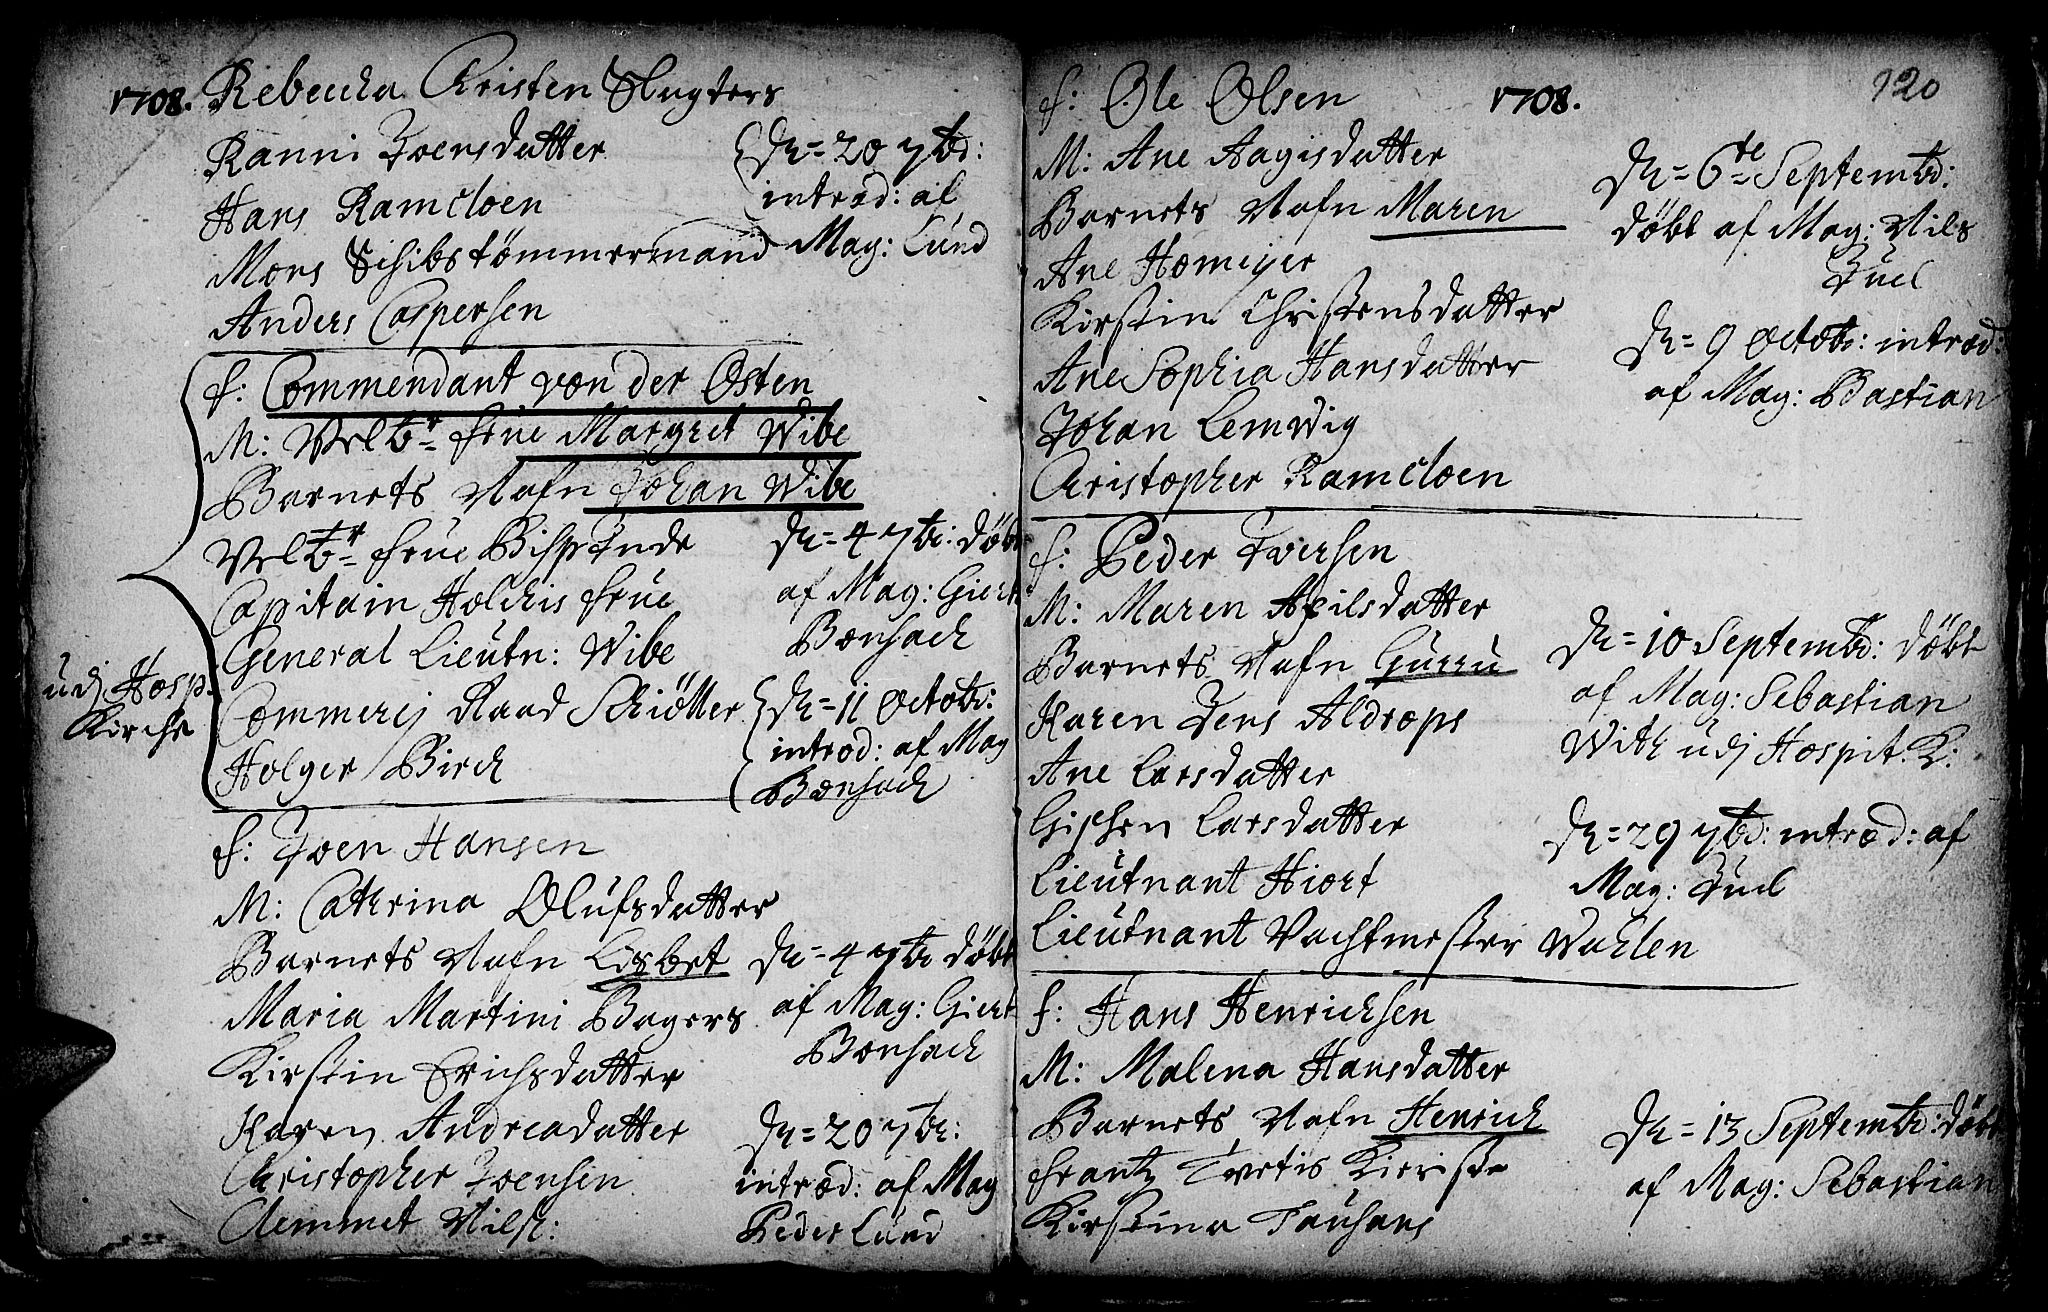 1708. Rebecha Christen Slagters
Kanni Joensdatter
Hans Ramcloen
Mons Schibstømmermand
Anders Caspersen
{Dn= 20 7br:
introd: af
Mag: Lund
f: Commendant von der Osten
M: Velb.r frue Margret Wibe
Barnets Nafn Johan Wibe
Velb.r frue Bisp
Capitain Holchis frue
General Lieutn: Wibe
Commercj Raad Schiøtter
Holger Birch
udj Hosp
Kirche
Dn= 4 7br: døbt
af Mag: Giert
Bonsach
{Dn= 11 Octobr:
introd: af Mag
Bonsach
f: Joen Hansen
M: Cathrina Olufsdatter
Barnets Nafn Lisbet
Maria Martini Bagers
Kirstin Erichsdatter
Karen Andreadatter
Christopher Joensen
Clemmet Nilss:
Dn= 4 7br døbt
af Mag: Giert
Bonsach
Dn= 20 7br:
introd: af Mag
Peder Lund
f: Ole Olsen 1708. 120
M: Ane Aagisdatter
Barnets Nafn Maren
Ane Homeijer
Kirstin Christensdatter
Ane Sophia Hansdatter
Johan Lemwig
Christopher Ramcloen
Dn= 6te Septembr:
døbt af Mag: Nils
Juel
Dn= 9 Octobr: introd:
af Mag: Bastian
f: Peder Iversen
M: Maren Apilsdatter
Barnets Nafn Gurru
Karen Jens Aldrops
Ane Larsdatter
Gishen Larsdatter
Lieutnant Hiort
Lieutnant Vachtmester Wahlen
Dn= 10 Septembr: døbt
af Mag: Sebastian
With udj Hospit. K:
Dn= 29 7br: introd: af
Mag: Juel
f: Hans Henrichsen
M: Malena Hansdatter
Barnets Nafn Henrich
Frantz Kierste
Kirstina Tauhans
Dn= 13 Septembr: døbt
af Mag: Sebastian